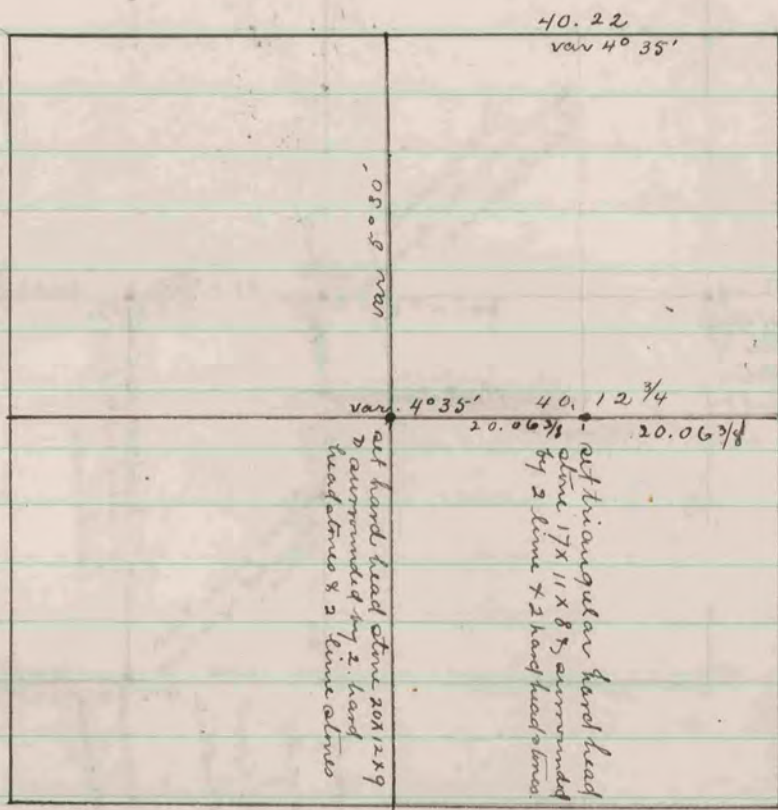 40.22
var 4° 35'
var 8° 50'
var. 4° 35'
40. 12 3/4
20.06 3/8
20.06 3/8
set hard head stone 20x12x9
& surrounded by 2. hard
head stones & 2 lime stones
set triangular hard head
stone 17x11x8 & surrounded
by 2 lime & 2 hard head stones.